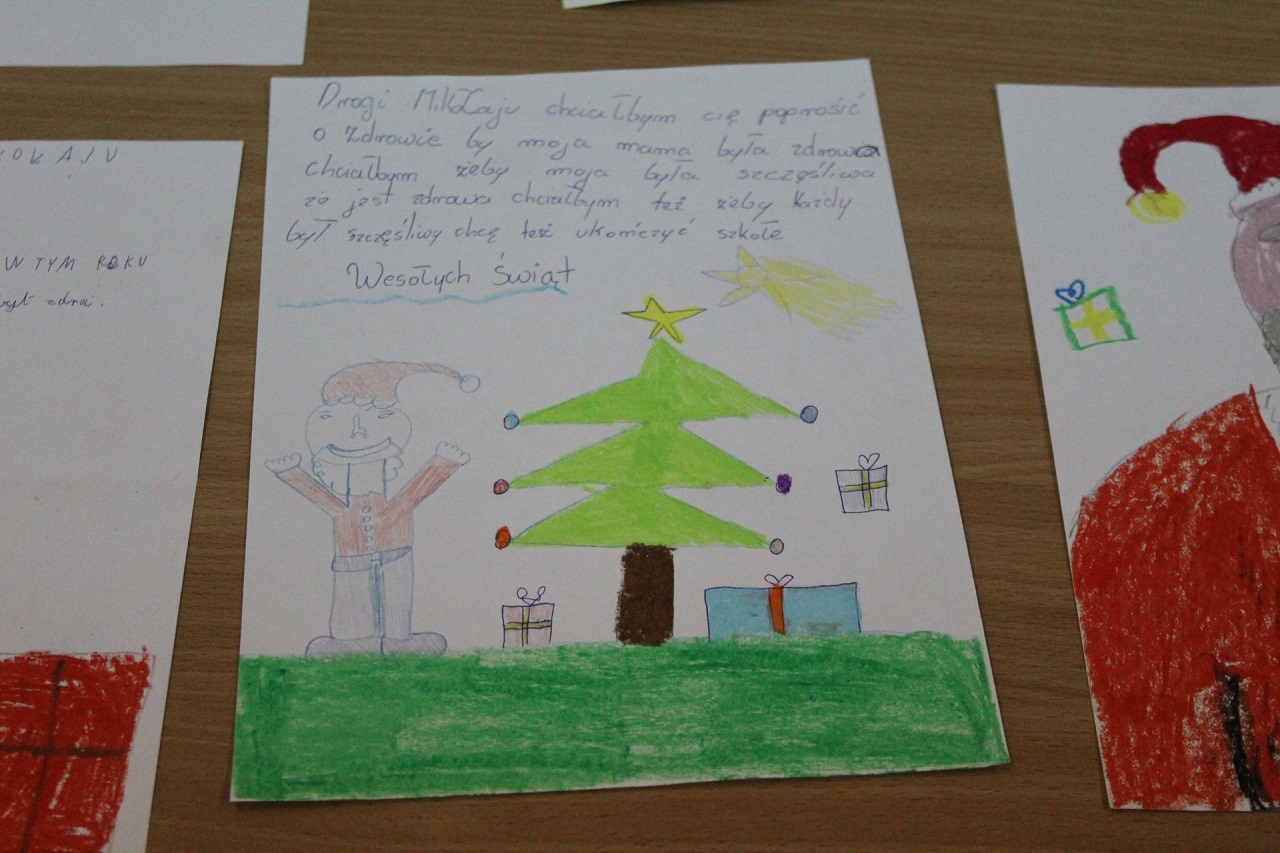 Drogi Mikołaju chciałbym cię poprosić
o Zdrowie by moja mama była zdrowa
chciałbym żeby moja była szczęśliwa
że jest zdrowa chciałbym też żeby każdy
był szczęśliwy chcę też ukończyć szkołe
Wesołych świąt
W TYM ROKU